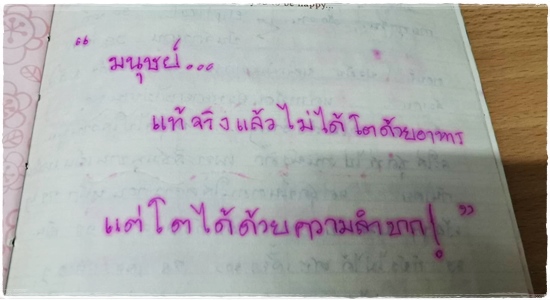 to be happy...
“ มนุษย์...
แท้จริงแล้วไม่ได้โตด้วยอาหาร
แต่โตได้ด้วยความลำบาก! ”